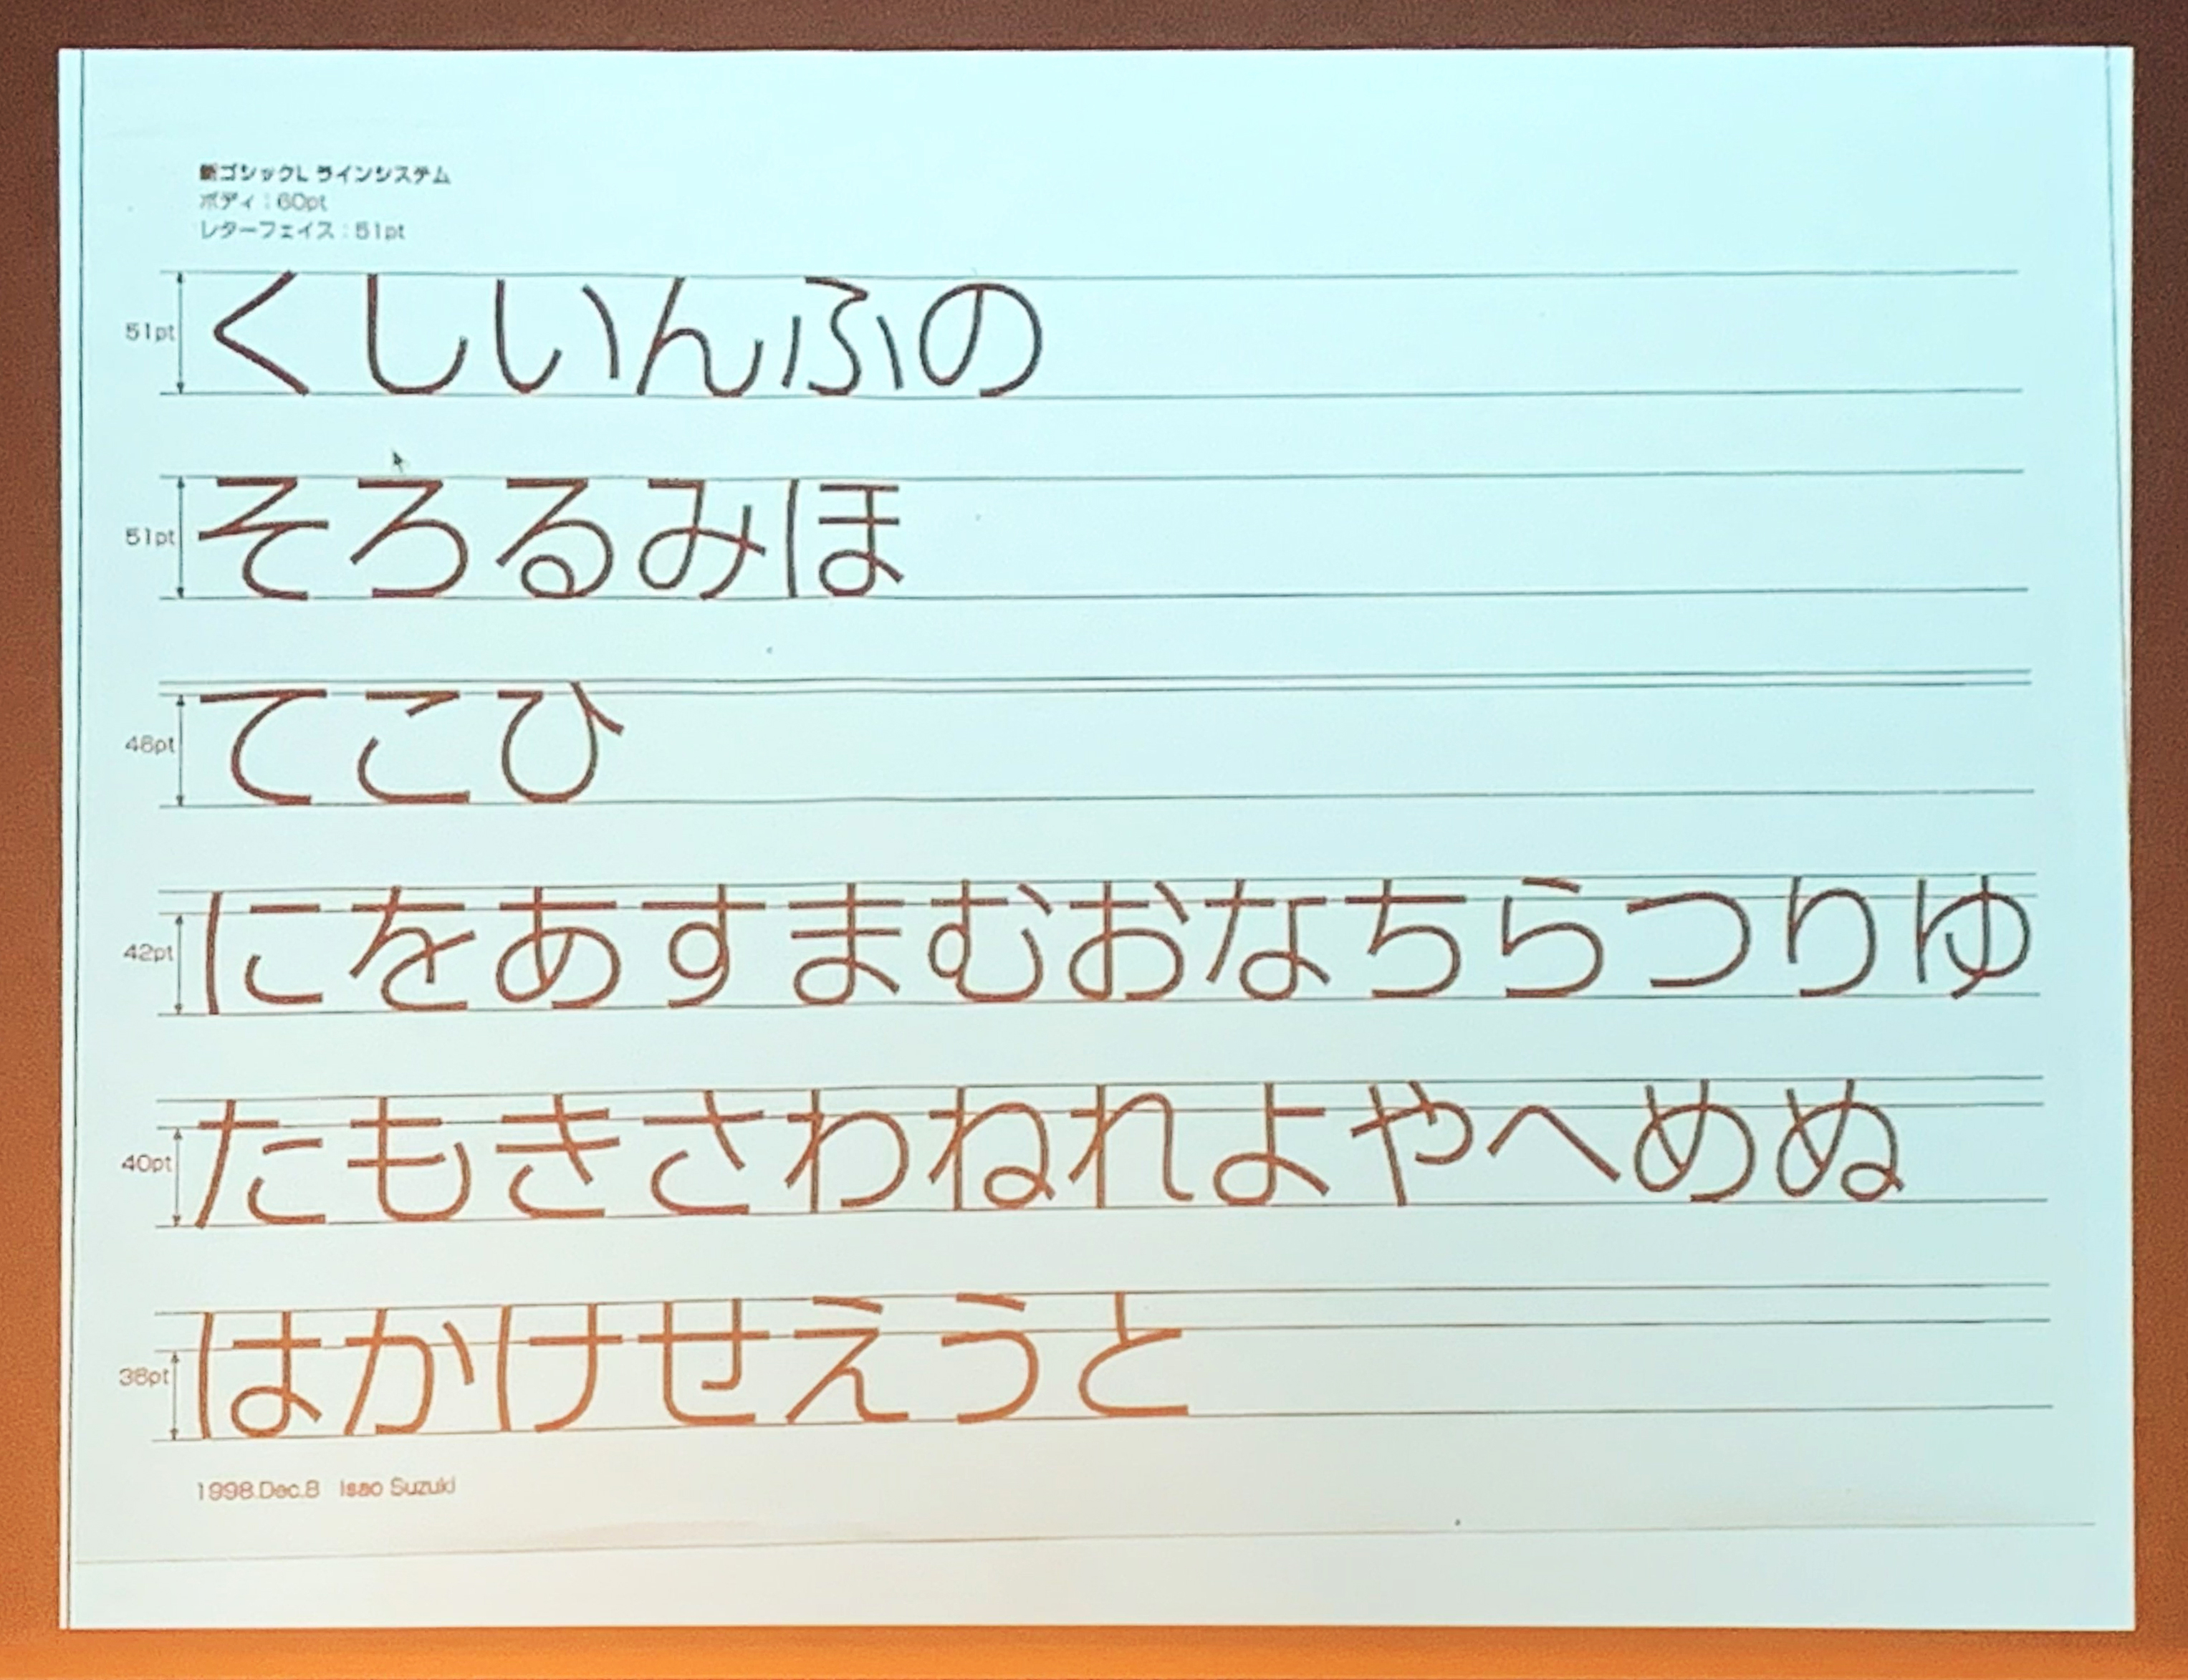 新ゴシックL ラインシステム
ボディ:60pt
レターフェイス:51pt
51pt くしいんふの
51pt そろるみほ
48pt てこひ
42pt にをあすまむおなちらつりゆ
40pt たもきさわねれよやへめぬ
38pt はかけせえうと
1998.Dec.8 Isao Suzuki